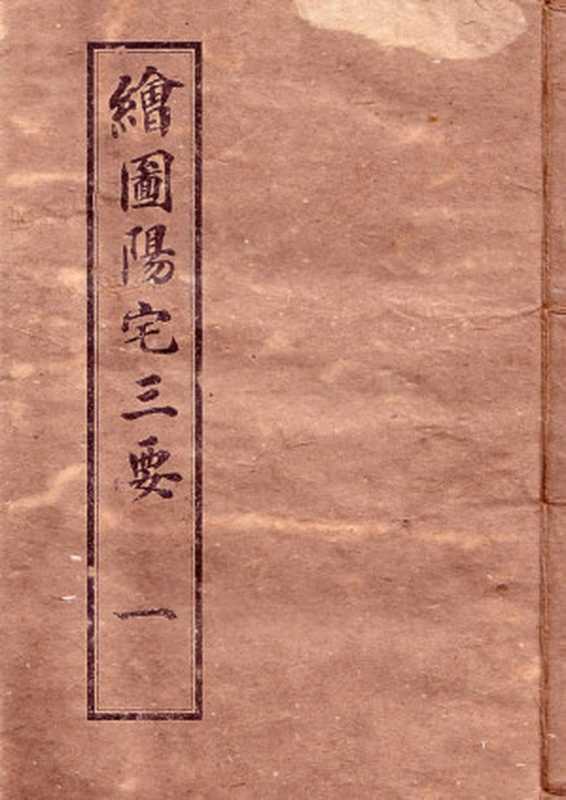 繪圖陽宅三要 一